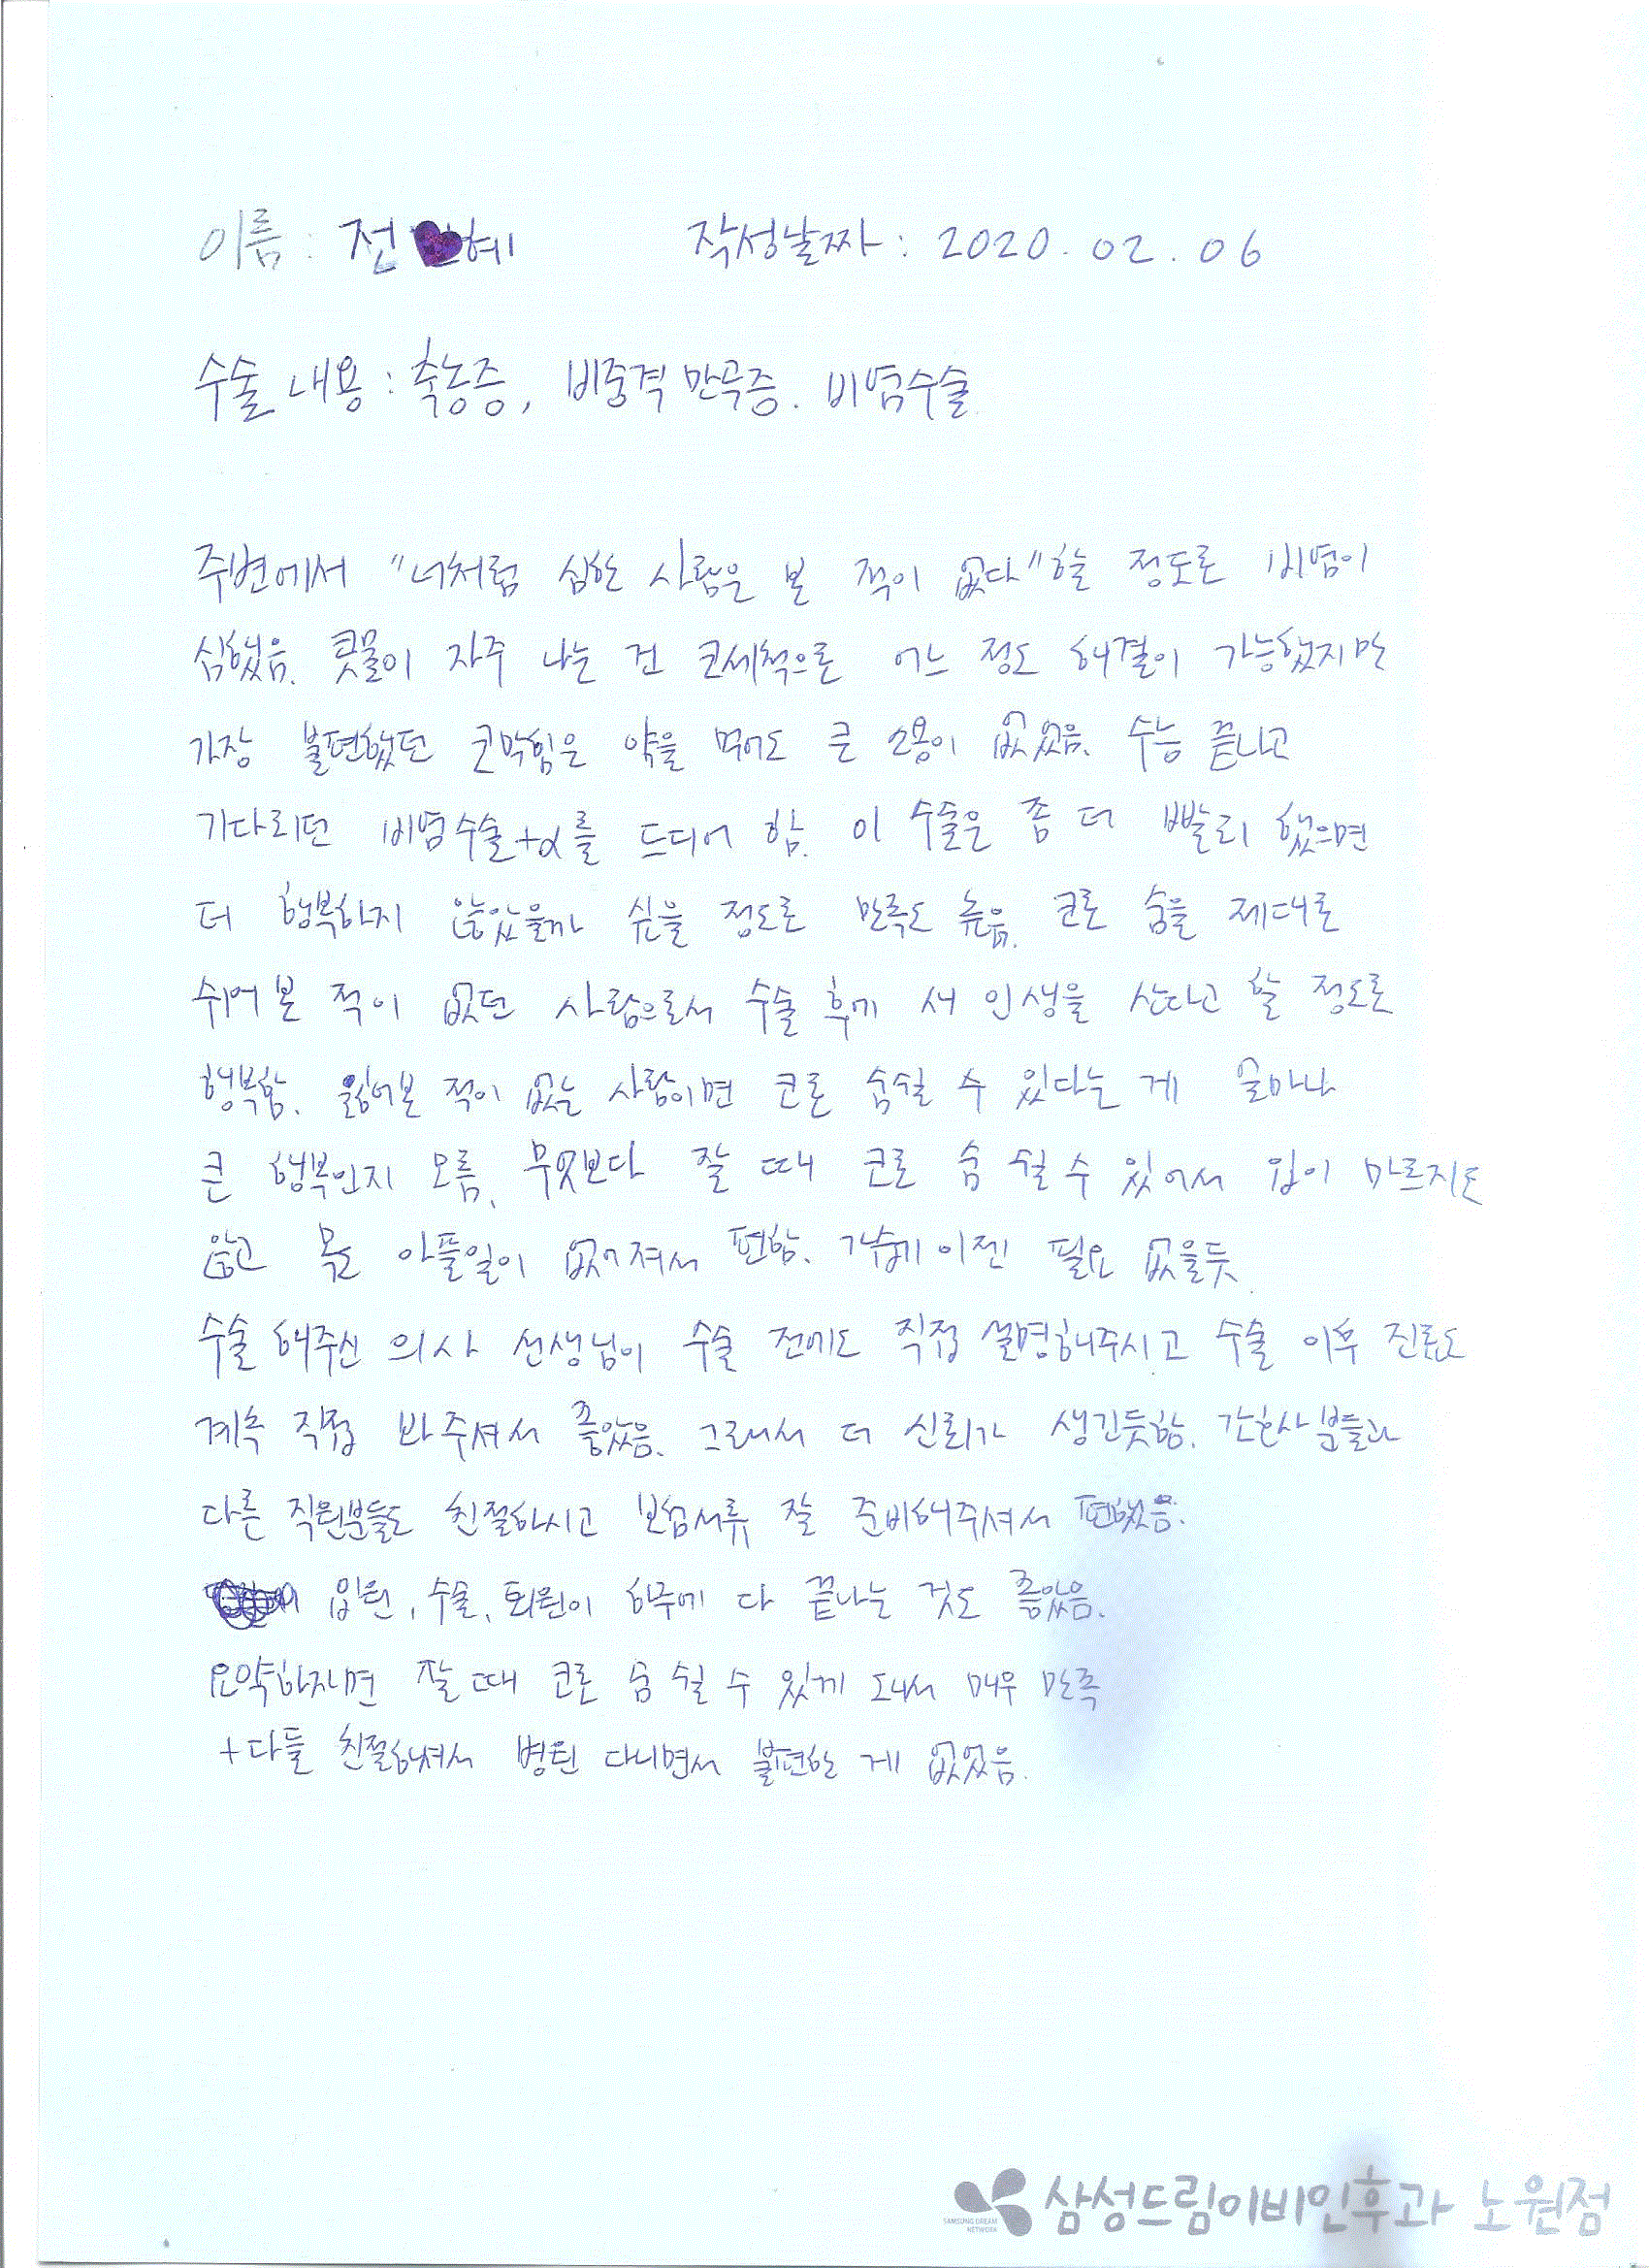 이름 : 전 혜 작성날짜 : 2020. 02. 06
수술 내용 : 축농증, 비중격 만곡증. 비염수술
주변에서 "너처럼 심한 사람은 본 적이 없다"할 정도로 비염이
심했음. 콧물이 자주 나는 건 코세척으로 어느 정도 해결이 가능했지만
가장 불편했던 코막힘은 약을 먹어도 큰 소용이 없었음. 수능 끝나고
기다리던 비염수술+α를 드디어 함. 이 수술은 좀 더 빨리 했으면
더 행복하지 않았을까 싶을 정도로 만족도 높음. 코로 숨을 제대로
쉬어 본 적이 없던 사람으로서 수술 후에 새 인생을 산다고 할 정도로
행복함. 잃어본 적이 없는 사람이면 코로 숨쉴 수 있다는 게 얼마나
큰 행복인지 모름. 무엇보다 잘 때 코로 숨 쉴 수 있어서 입이 마르지도
않고 목도 아플일이 없어져서 편함. 가습기 이젠 필요 없을듯
수술 해주신 의사 선생님이 수술 전에도 직접 설명해주시고 수술 이후 진료도
계속 직접 봐주셔서 좋았음. 그래서 더 신뢰가 생긴듯함. 간호사분들과
다른 직원분들도 친절하시고 보험서류 잘 준비해주셔서 편했음.
입원, 수술, 퇴원이 하루에 다 끝나는 것도 좋았음.
요약하자면 잘 때 코로 숨 쉴 수 있게 돼서 매우 만족
+다들 친절하셔서 병원 다니면서 불편한 게 없었음.
SAMSUNG DREAM NETWORK 삼성드림이비인후과 노원점